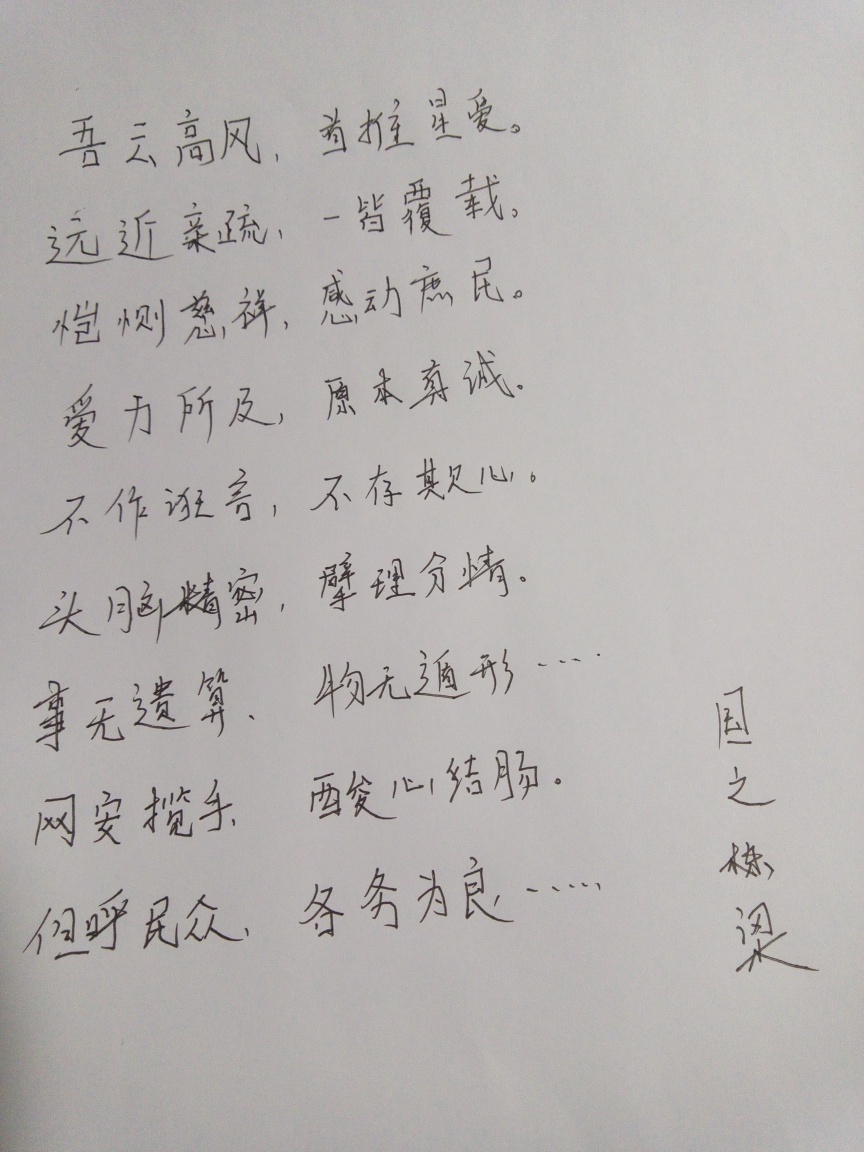 吾云高风，首推星爱。
远近亲疏，一皆覆载。
恺恻慈祥，感动庶民。
爱力所及，原本真诚。
不作诳言，不存欺心。
头脑精密，擘理分情。
事无遗算、物无遁形……
网安揽手、酸心结肠。
但呼民众，各务为良……
国之栋梁